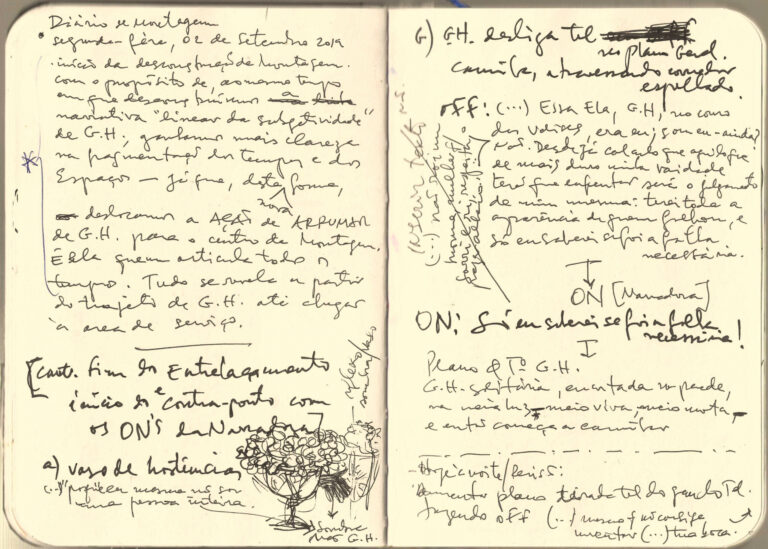 Diário de Montagem
segunda-feira, 02 de Setembro 2019
. início da desconstrução de Montagem.
com o propósito de, ao mesmo tempo
em que desconstruímos a
narrativa "linear da subjetividade"
de G.H., ganhamos mais clareza
na fragmentação dos tempos e dos
Espaços — já que, desta forma,
deslocamos a nova AÇÃO de ARRUMAR
de G.H. para o centro da Montagem.
É ela quem articula todo o
tempo. Tudo se revela a partir
do trajeto de G.H. até chegar
à área de serviço.
[cont. fim do Entrelaçamento
e início do contra-ponto com
os ON'S da Narradora]
a) vaso de hortências
(...) "
uma pessoa inteira.
Sombra
G.H.
G) G.H. desliga tel
no plano Geral.
caminha, atravessando corredor
espelhado.
(...) não
OFF: (...) Essa Ela, G.H, no couro
das valises, era eu; sou eu - ainda?
Não. Desde já calculo que aquilo que
de mais duro minha vaidade
terá que enfrentar será o julgamento
de mim mesma: terei toda a
aparência de quem falhou, e
só eu saberei se foi a falha
necessária.
ON [Narradora]
ON: Só eu saberei se foi a falha
necessária!
Plano G.H.
G.H. solitária, encostada na parede,
na meia luz, meio viva, meio morta,
e então começa a caminhar
Hoje à noite
plano tirada tel do gancho
fazendo off (...)
(...) tua boca.